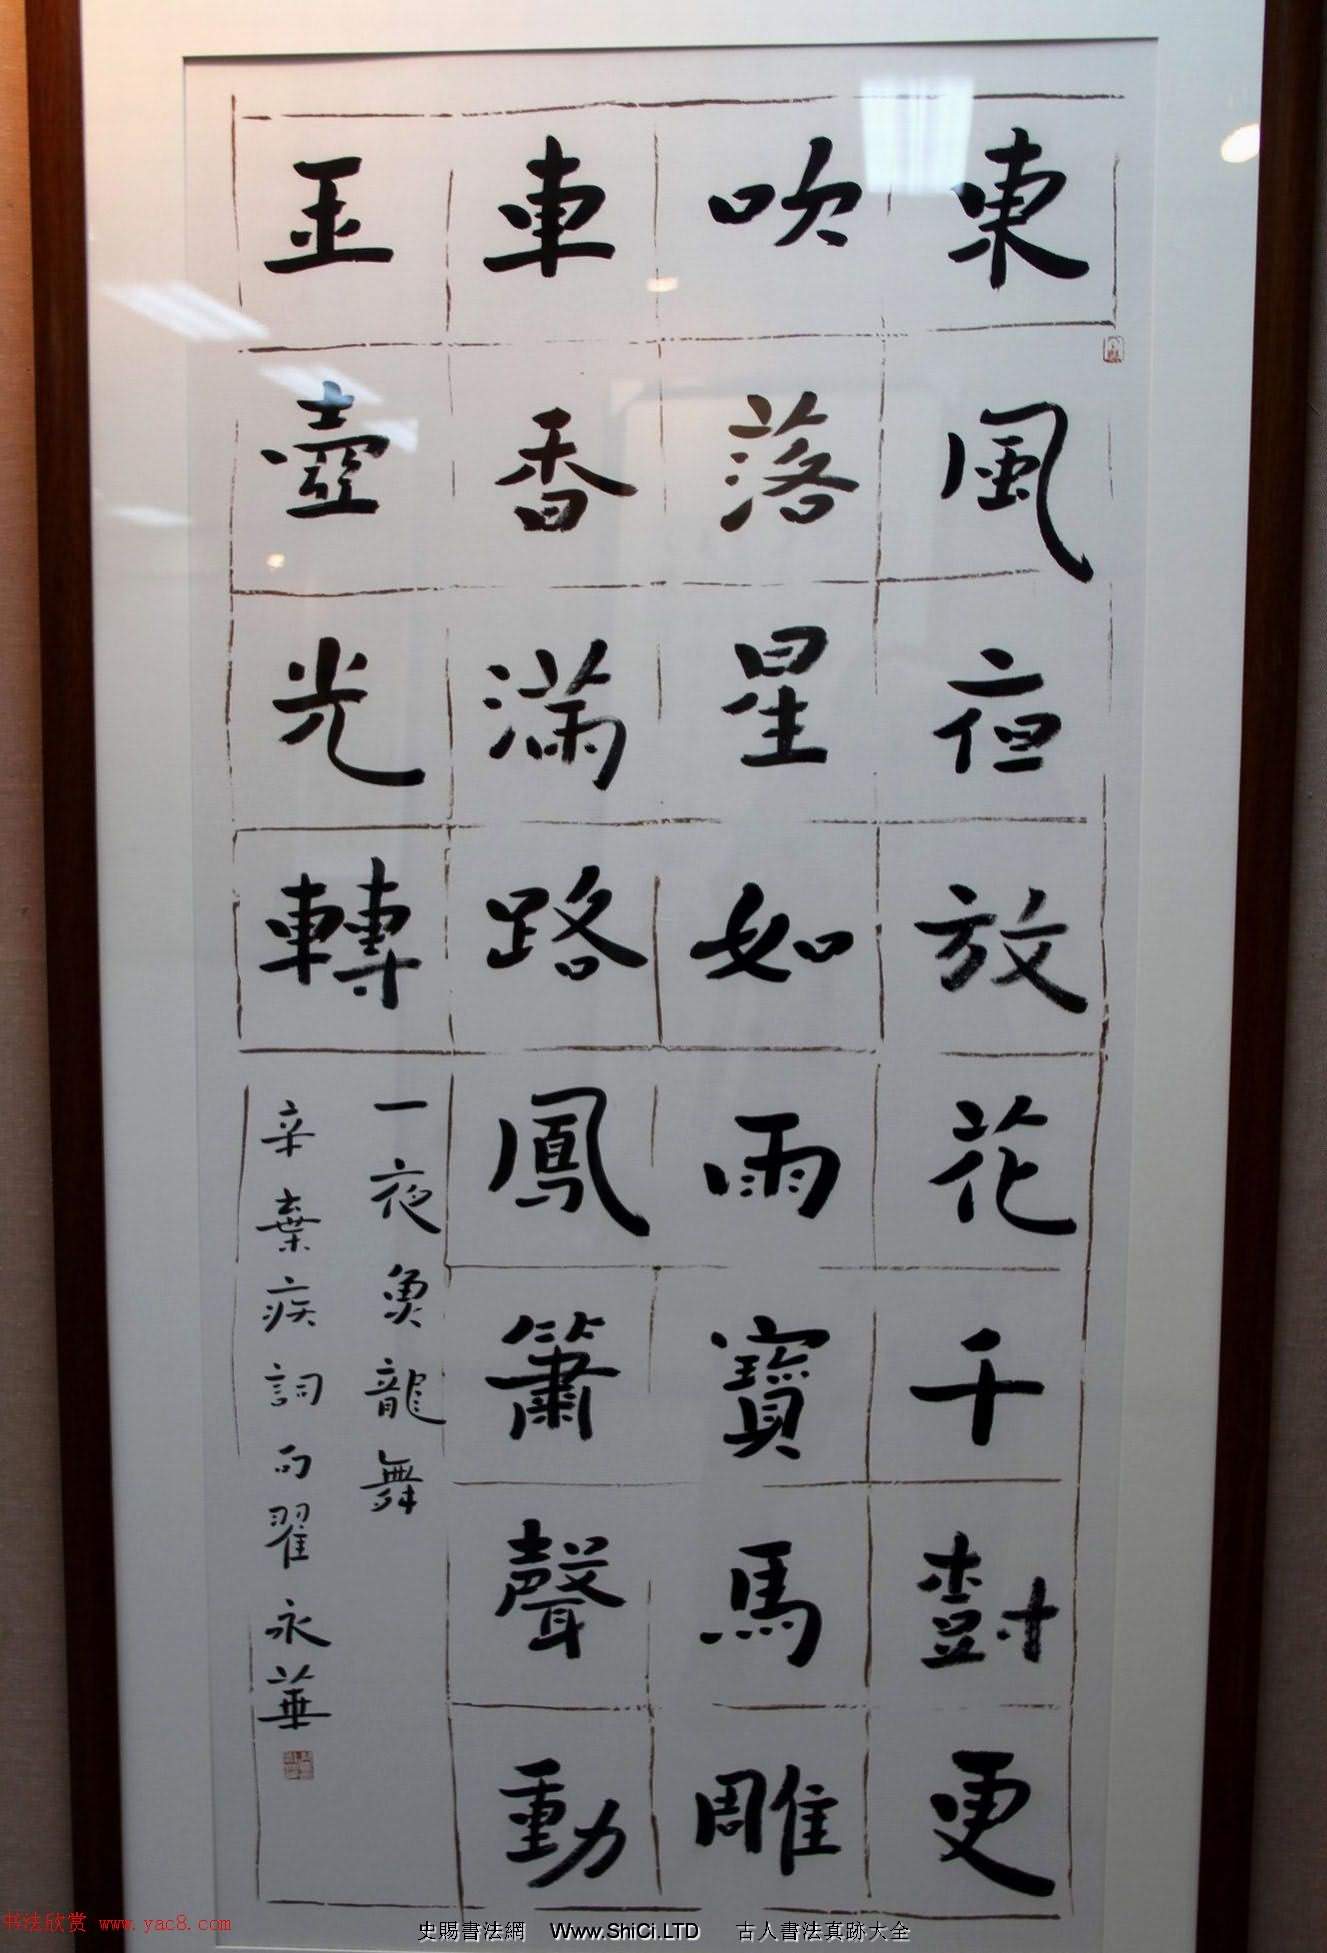 東風夜放花千樹更
吹落星如雨寶馬雕
車香滿路鳳簫聲動
玉壺光轉
一夜魚龍舞
辛棄疾詞句翟永華
书法欣赏 www.yac8.com
史賜書法網 Www.ShiCi.LTD 古人書法真跡大全